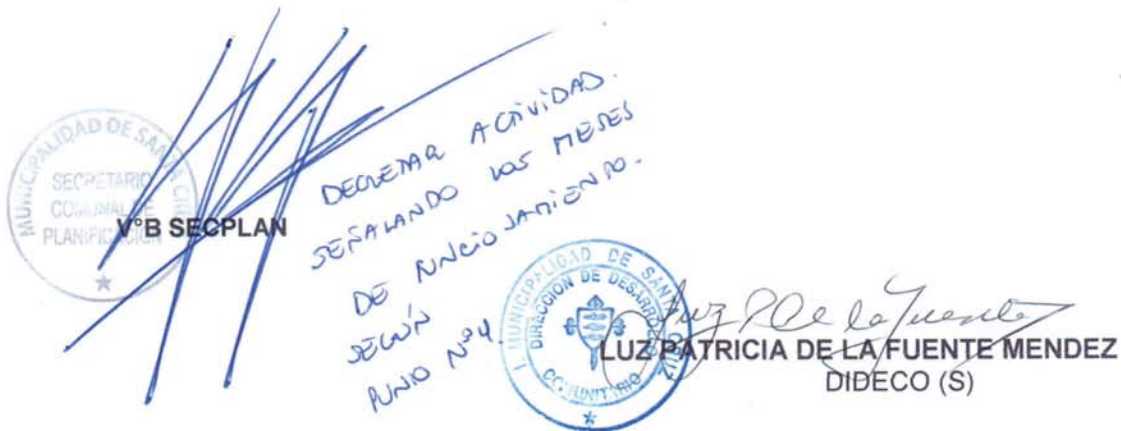 MUNICIPALIDAD DE SANTA CRUZ
SECRETARIO
COMUNAL DE
PLANIFICACIÓN
V°B SECPLAN
DECRETAR ACTIVIDAD.
SEÑALANDO LOS MESES
DE FUNCIONAMIENTO.
SEGÚN
PUNTO Nº4
I. MUNICIPALIDAD DE SANTA CRUZ
DIRECCION DE DESARROLLO
COMUNITARIO
Luz P De la Fuente
LUZ PATRICIA DE LA FUENTE MENDEZ
DIDECO (S)